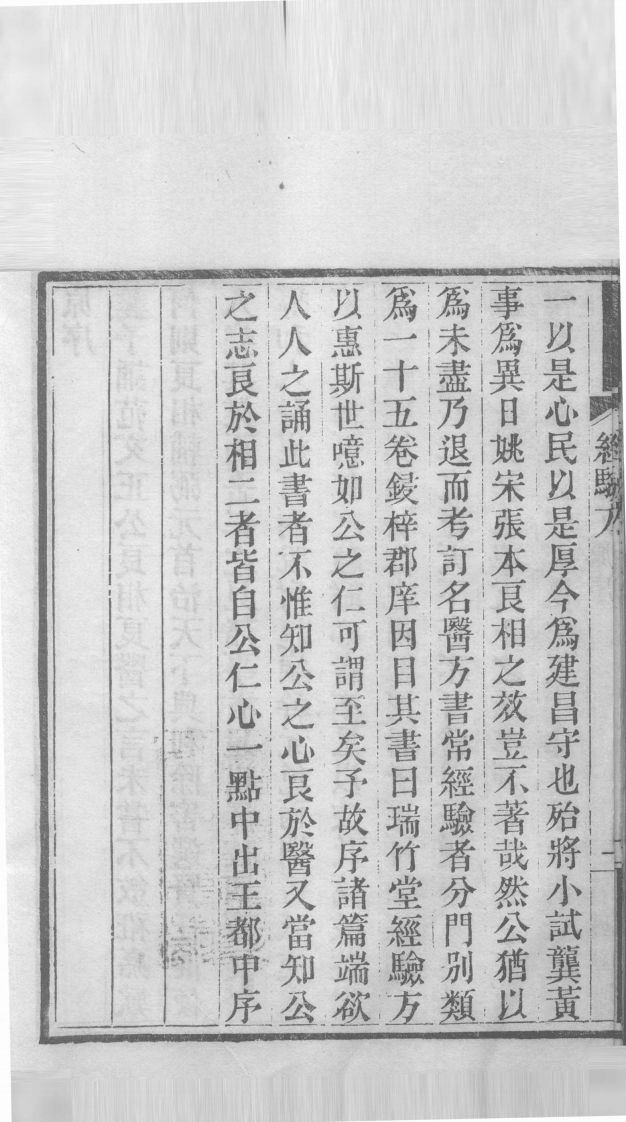 一以是心民以是厚今爲建昌守也殆將小試龔黃
事爲異日姚宋張本良相之效豈不著哉然公猶以
爲未盡乃退而考訂名醫方書常經驗者分門別類
爲一十五卷鋟梓郡庠因目其書曰瑞竹堂經驗方
以惠斯世噫如公之仁可謂至矣予故序諸篇端欲
人人之誦此書者不惟知公之心良於醫又當知公
之志良於相二者皆自公仁心一點中出王都中序
經驗方
二